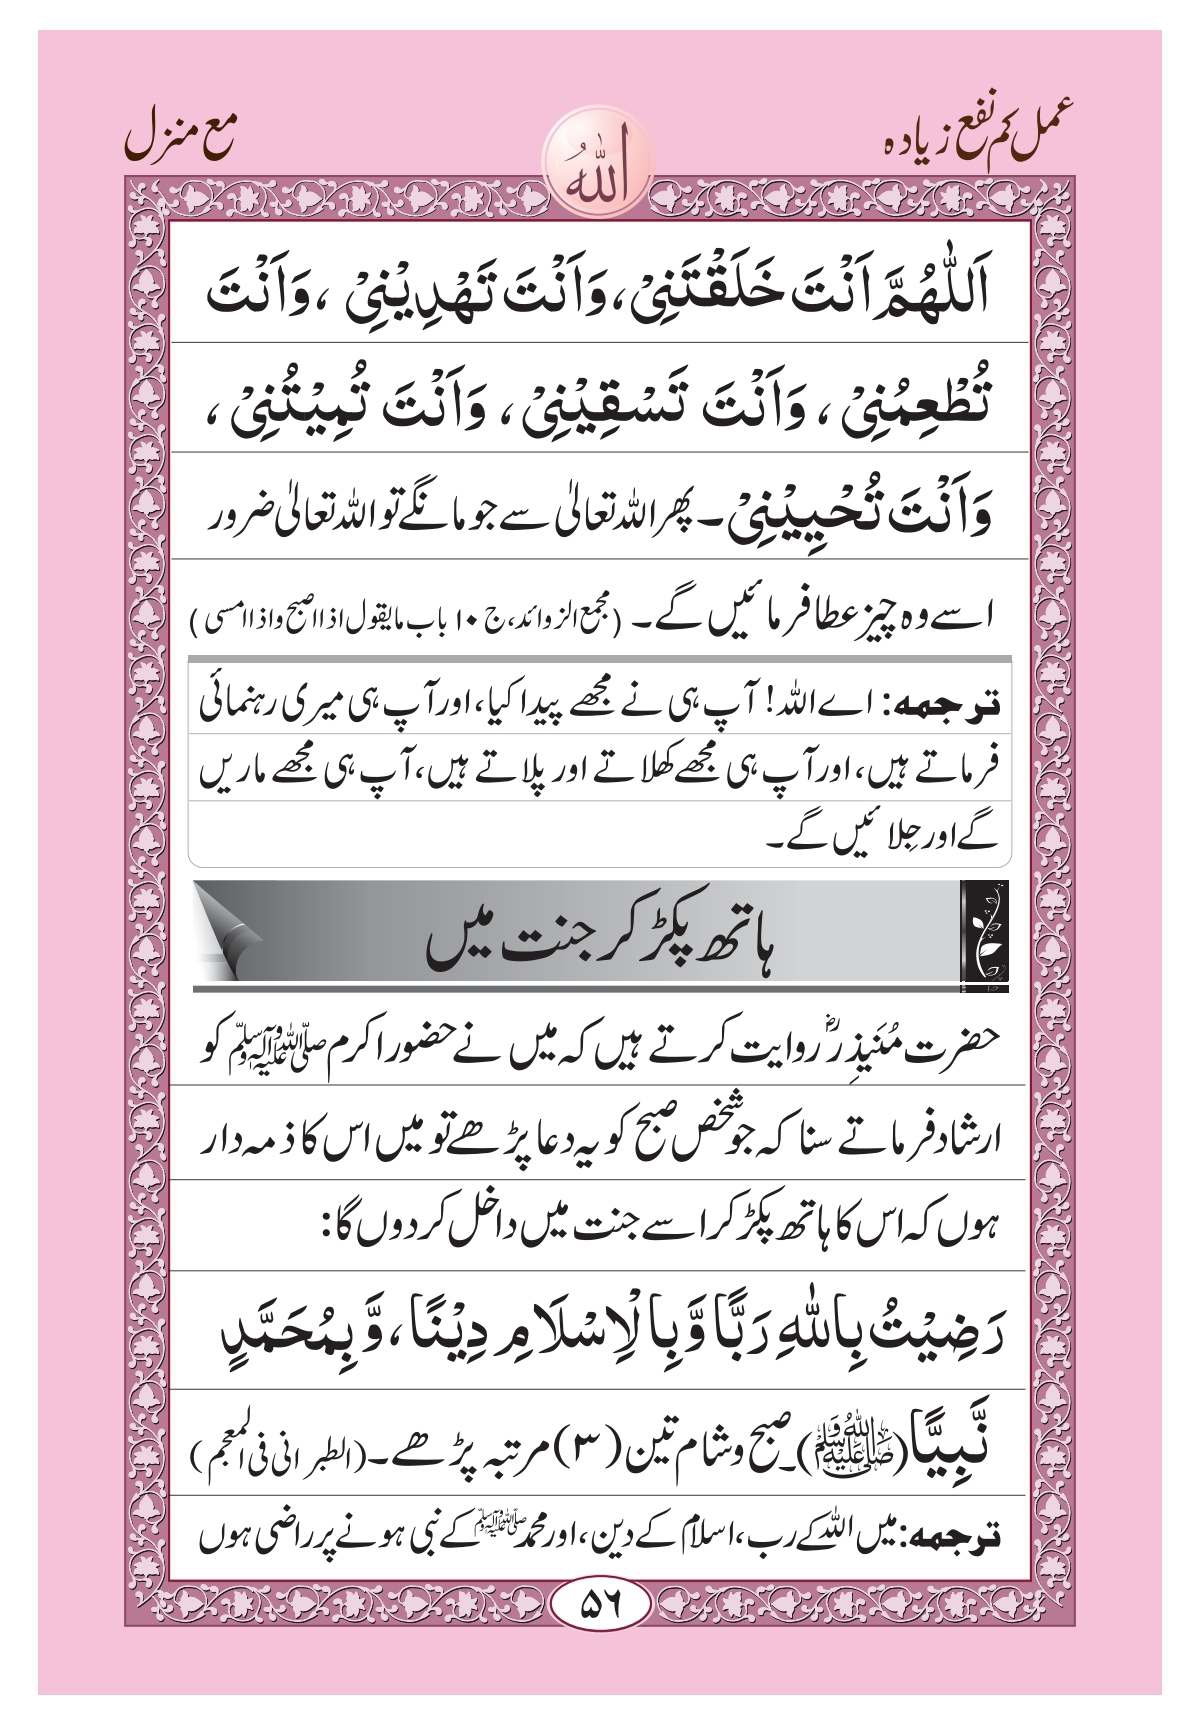 عمل کم نفع زیادہ
اللہ
مع منزل
اَللّٰهُمَّ اَنْتَ خَلَقْتَنِیْ، وَاَنْتَ تَهْدِیْنِیْ ، وَاَنْتَ
تُطْعِمُنِیْ ، وَاَنْتَ تَسْقِیْنِیْ ، وَاَنْتَ تُمِیْتُنِیْ ،
وَاَنْتَ تُحْیِیْنِیْ ۔ پھر اللہ تعالیٰ سے جو مانگے تو اللہ تعالیٰ ضرور
اسے وہ چیز عطا فرمائیں گے۔ (مجمع الزوائد، ج ۱۰ باب مایقول اذا اصبح واذا امسی )
ترجمہ: اے اللہ! آپ ہی نے مجھے پیدا کیا، اور آپ ہی میری رہنمائی
فرماتے ہیں، اور آپ ہی مجھے کھلاتے اور پلاتے ہیں، آپ ہی مجھے ماریں
گے اور جِلائیں گے۔
ہاتھ پکڑ کر جنت میں
حضرت مُنَیذِرؓ روایت کرتے ہیں کہ میں نے حضور اکرم صلی اللہ علیہ وآلہ وسلم کو
ارشاد فرماتے سنا کہ جو شخص صبح کو یہ دعا پڑھے تو میں اس کا ذمہ دار
ہوں کہ اس کا ہاتھ پکڑ کر اسے جنت میں داخل کر دوں گا:
رَضِیْتُ بِاللّٰهِ رَبًّا وَّبِالْاِسْلَامِ دِیْنًا، وَّبِمُحَمَّدٍ
نَّبِیًّا (ﷺ)۔ صبح و شام تین (۳) مرتبہ پڑھے۔ (الطبرانی فی المعجم )
ترجمہ: میں اللہ کے رب، اسلام کے دین، اور محمد صلی اللہ علیہ وآلہ وسلم کے نبی ہونے پر راضی ہوں
۵۶